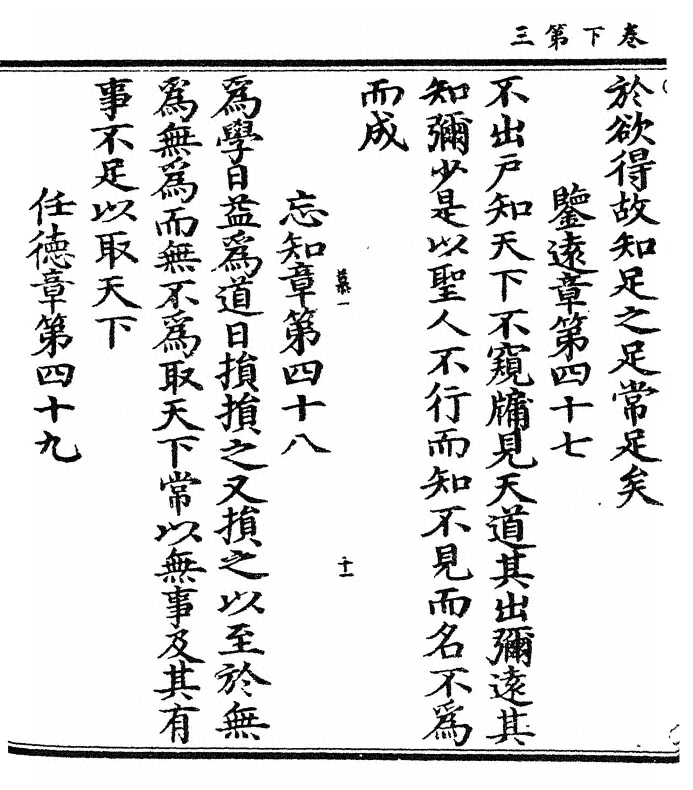 三第下卷
於欲得故知足之足常足矣
鑒遠章第四十七
不出戸知天下不窺牖見天道其出彌逺其
知彌少是以聖人不行而知不見而名不為
而成
忘知章第四十八
為學日益為道日損損之又損之以至於無
為無為而無不為取天下常以無事及其有
事不足以取天下
任德章第四十九
十一